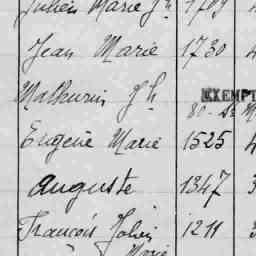 Julien Marie Jh 1709
Jean Marie 1730 4
Mathurin Jh EXEMPT
80 - Se
Eugène Marie 1525 4
Auguste 1347 3
François Julien 1211 3
Marie